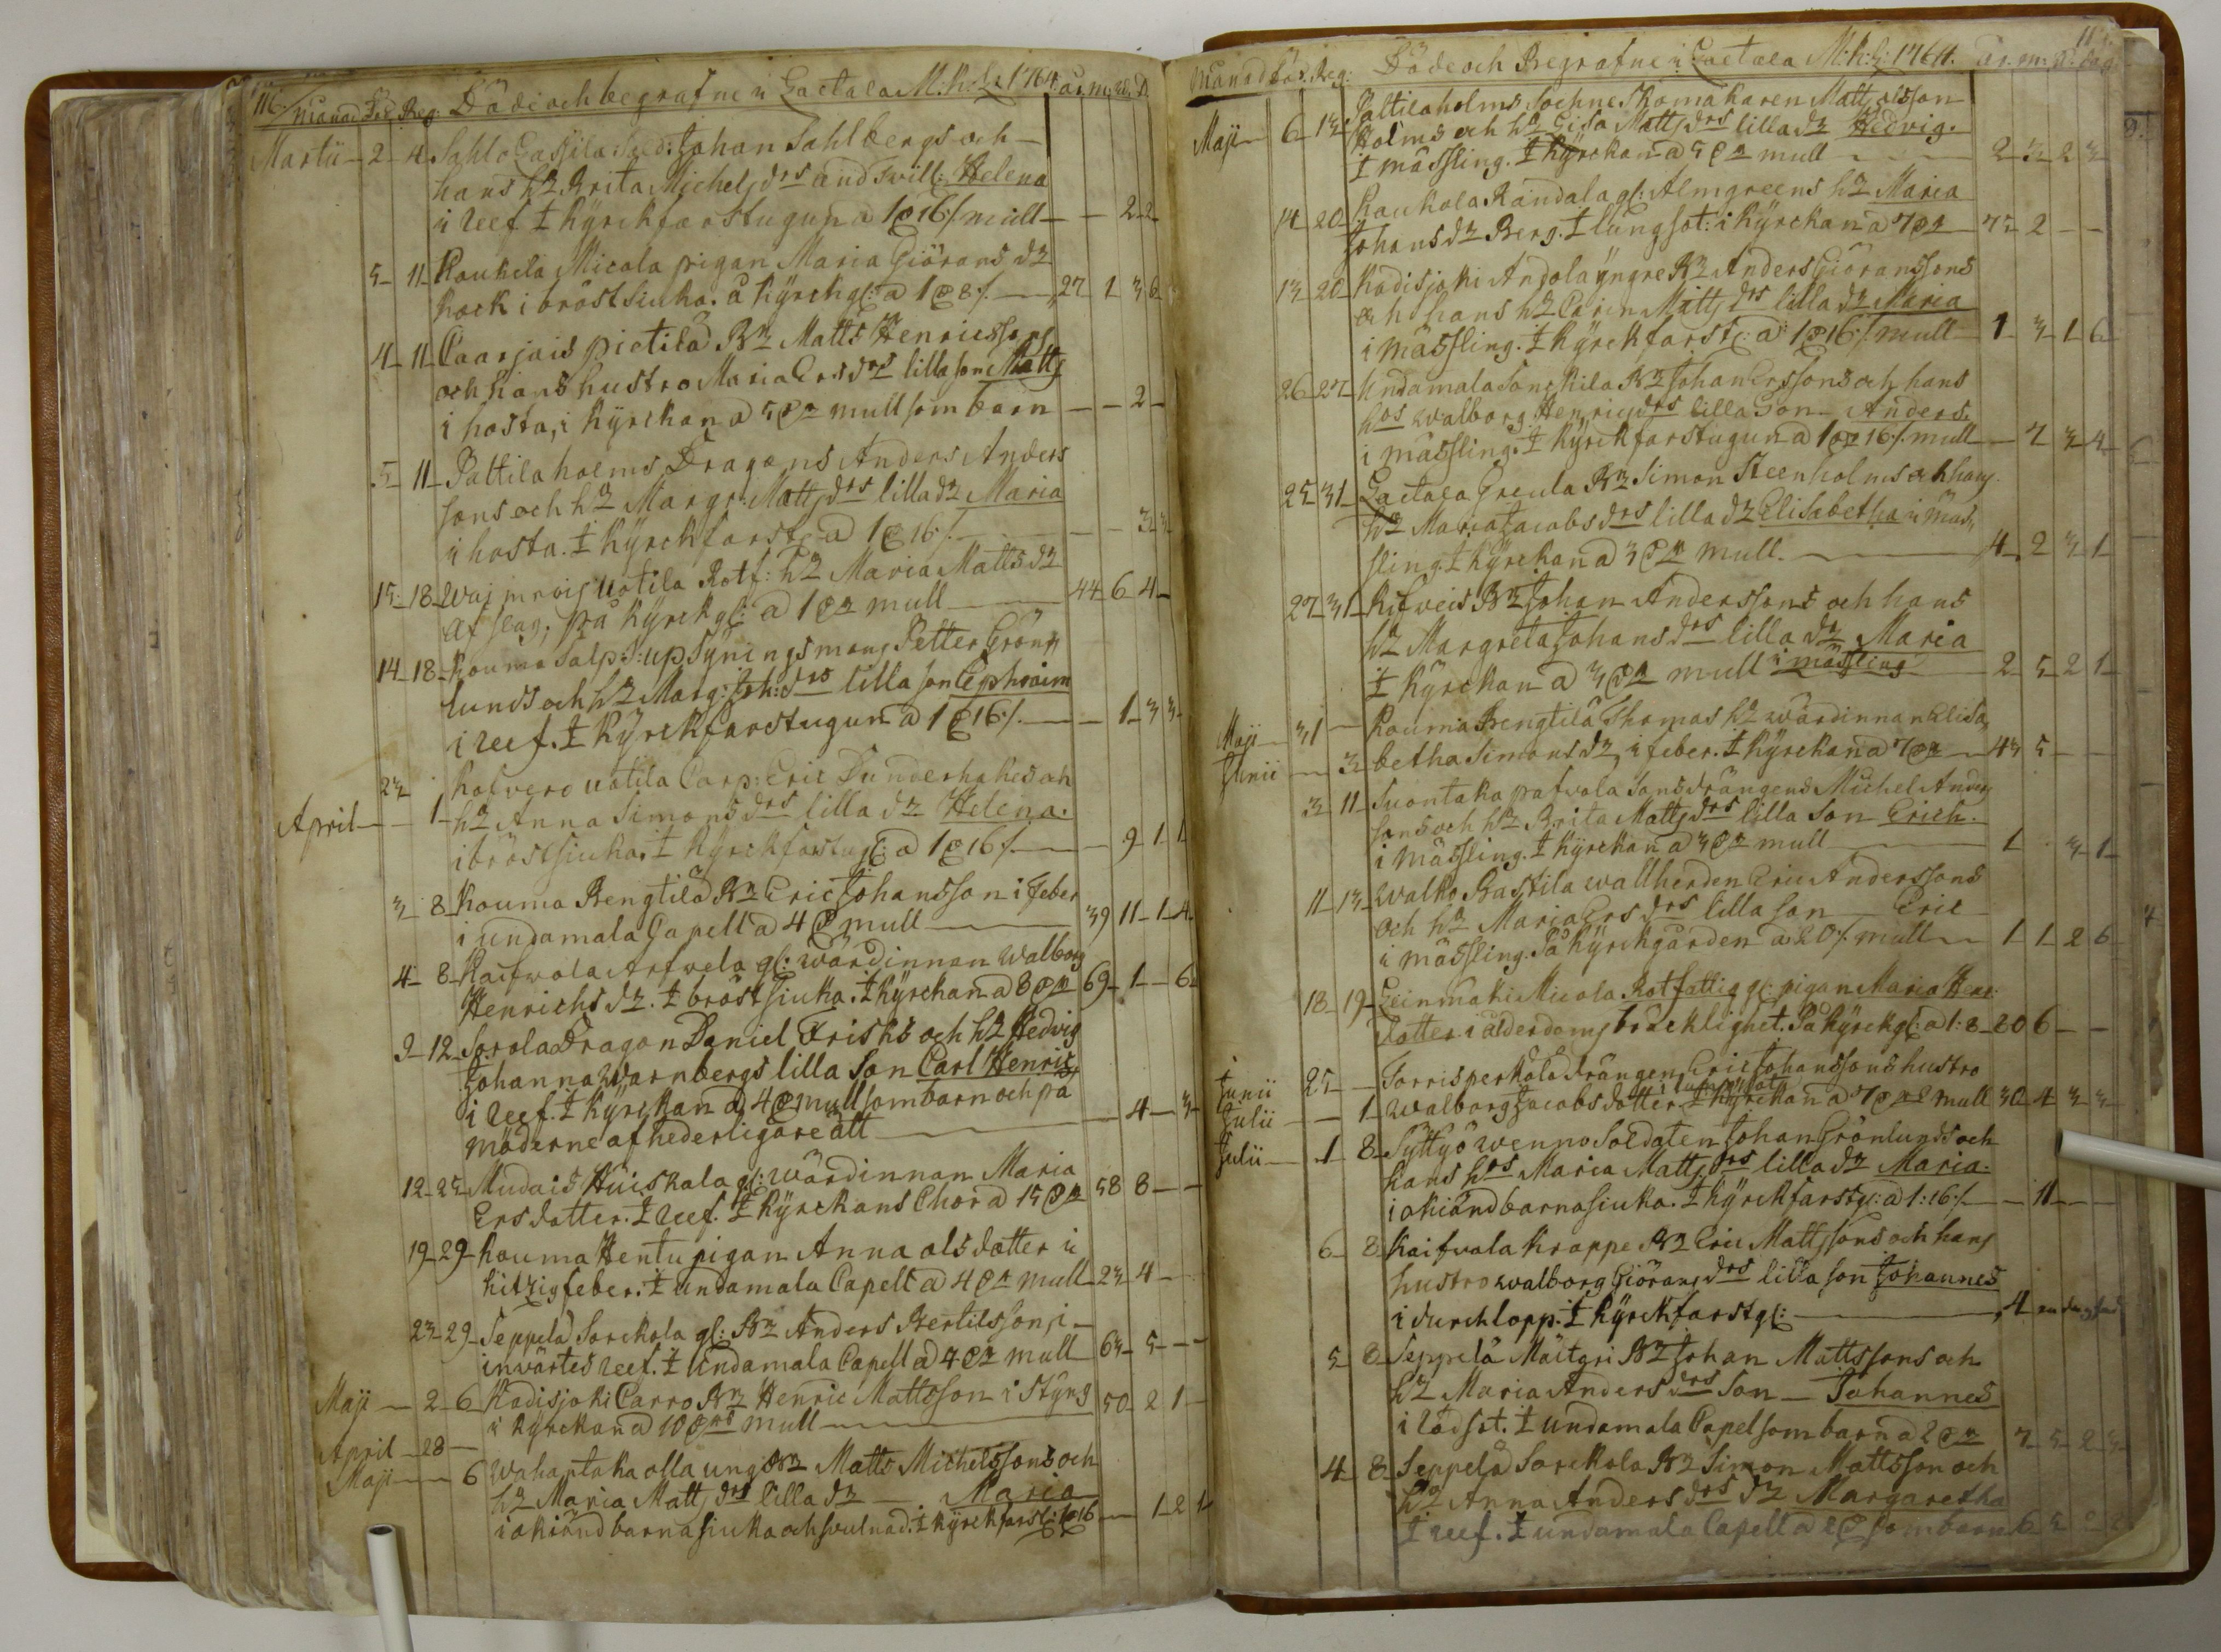 116. Månad Död. Beg. Döde och begrafne i Laetala M:K: 1764. år. m. w. D.
Martii 2 4 Sahlo Gastila Sold: Johan Sahlbergs och
hans h. Brita Michelsdrs ands will: Helena
i reef I Kyrckfarstugun a 1 16/ mull — — 2 2
5 11 Kaukola Micola pigan Maria Giörans dr
Kock i bröstsiuka. å Kyrckg: a 1 8/. 27 1 3 6
4 11 Caarjais Pietilä Br Matts Henricssons
och hans hustro Maria Ersdrs lilla son Matts
i hosta, i Kyrckan a 5 mull som barn — — 2 —
5 11 Pattilaholms Dragons Anders Anders
sons och hr Margr: Mattsdrs lilla dr Maria
i hosta. I Kyrckfarst: a 1 16/. — — 3 3
15 18 Waimrois Uotila Rotf: hr Maria Matts dr
af slag, på Kyrckg: a 1 mull 44 6 4
14 18 Kouma Salp: S: upsynings mans Petter Grön
lunds och hr Marg: Joh:drs lilla son Ephraim
i reef. I Kyrckfarstugun a 1 16/. — 1 3 3
23 Kafvero uotila Corp: Eric Sunderhakes och
April 1 hr Anna Simonsdrs lilla dr Helena.
i bröstsiuka. I Kyrckfarstug: a 1 16/. — 9 1 1
3 8 Kouma Bengtilä Br Eric Johansson i feber
i undamala Capell a 4 mull 39 11 1 4
4 8 Kaifwola Arfvela gl: wärdinnan Walborg
Henrichs dr. I bröstsiuka. I Kyrckan a 8 69 1 — 6
9 12 Sorola Dragon Daniel Frisks och hr Hedvig
Johanna Warnbergs lilla son Carl Henric
i reef. I Kyrckan a 4 mull som barn och på
möderne af hederligare ätt — 4 — 3
12 25 Mudais Huiskala gl: wärdinnan Maria
Ersdotter. I reef. I Kyrckans Chor a 15 58 8 — —
19 29 Kouma Hentu pigan Anna olsdotter i
hitzig feber. I undamala Capell a 4 mull 23 4 —
23 29 Seppelä Sorckola gl: Br Anders Bertilsson i
invärtes reef. I Undamala Capell a 4 mull 63 5 — —
Maji 2 6 Kadisjoki Carro Br Henric Mattsson i Styng
i Kyrckan a 10 mull 50 2 1 —
April 28 —
Maji 6 Wahantaka olla ung Br Matts Michelssons och
hr Maria Mattsdrs lilla dr — Maria
i okiänd barnasiuka och svulnad. I Kyrckfarst: 1 16 — 1 2 1
Månad Död. Beg: Döde och Begrafne i Laetala M:K: 1764. år. m: w: dag.
Maji 6 13 Pattilaholms Sochne Skomakaren Matts olsson
Holms och hr Lisa Mattsdrs lilla dr Hedvig.
I mässling. I Kyrckan a 5 mull 2 3 2 3
14 20 Kaukola Randala gl: Almgreens hr Maria
Johans dr Berg. I lungsot: i Kyrckan a 7 75 2 — —
13 20 Kadisjoki Andola yngre Br Anders Giöranssons
och hans hr Carin Mattsdrs lilla dr Maria
i mässling. I Kyrckfarst: a 1 16/ mull 1 3 1 6
26 27 Undamala Sonckila Br Johan Erssons och hans
hos Walborg Henricsdrs lilla son Anders.
i mässling. I Kyrckfarstugun a 1 16/. mull — 7 3 4
25 31 Laetala Greula Br Simon Steenholms och hans
hr Maria Jacobs drs lilla dr Elisabetha i mäs
sling. I Kyrckan a 3 mull. 4 2 3 1
27 31 Kifveis Br Johan Anderssons och hans
hr Margreta Johans drs lilla dr Maria
I Kyrckan a 3 mull i mässling 2 5 2 1
Maji 31 — Kouma Bengtilä Thomas hr wärdinnan Elisa
Junii — 3 betha Simons dr, i feber. I Kyrckan a 7 43 5 — —
3 11 Suontaka pafvola Sonsdrängens Michel Anders
sons och hr Brita Mattsdrs lilla Son Erich.
i mässling. I Kyrckan a 3 mull 1 3 1
11 13 Walko Bastila wallherden Eric Anderssons
och hr Maria Ersdrs lilla son — Eric
i mässling. På Kyrckgården a: 20/. mull 1 1 2 6
18 19 Leinmäki Micola Rotfattig gl: pigan Maria Henr:
dotter i ålderdoms bräcklighet. På Kyrckg: a 1:8 80 6 — —
Junii 25 — Torris perkola drängen Eric Johanssons hustro
Julii — 1 Walborg Jacobsdotter i lungsot I Kyrckan a 7 mull 30 4 3 3
Julii 1 8 Syttyö wenno Soldaten Johan Grönlunds och
hans hos Maria Mattsdrs lilla dr Maria.
i okiänd barnasiuka. I Kyrckfarst: a 1:16/. — 11 — —
6 8 Kaifvala Krappe Br Eric Mattssons och hans
hustro walborg Giöransdrs lilla son Johannes
i durchlopp. I Kyrckfarstg: 4
5 8 Seppelä Mäitgri Br Johan Mattssons och
hr Maria Anders drs Son — Johannes
i rödsot. I undamala Capel som barn a 2 7 5 2 3
4 8 Seppelä Sorckola Br Simon Mattsson och
hr Anna Anders drs dr Margaretha
I reef. I undamala Capell a 2 som barn 6 5